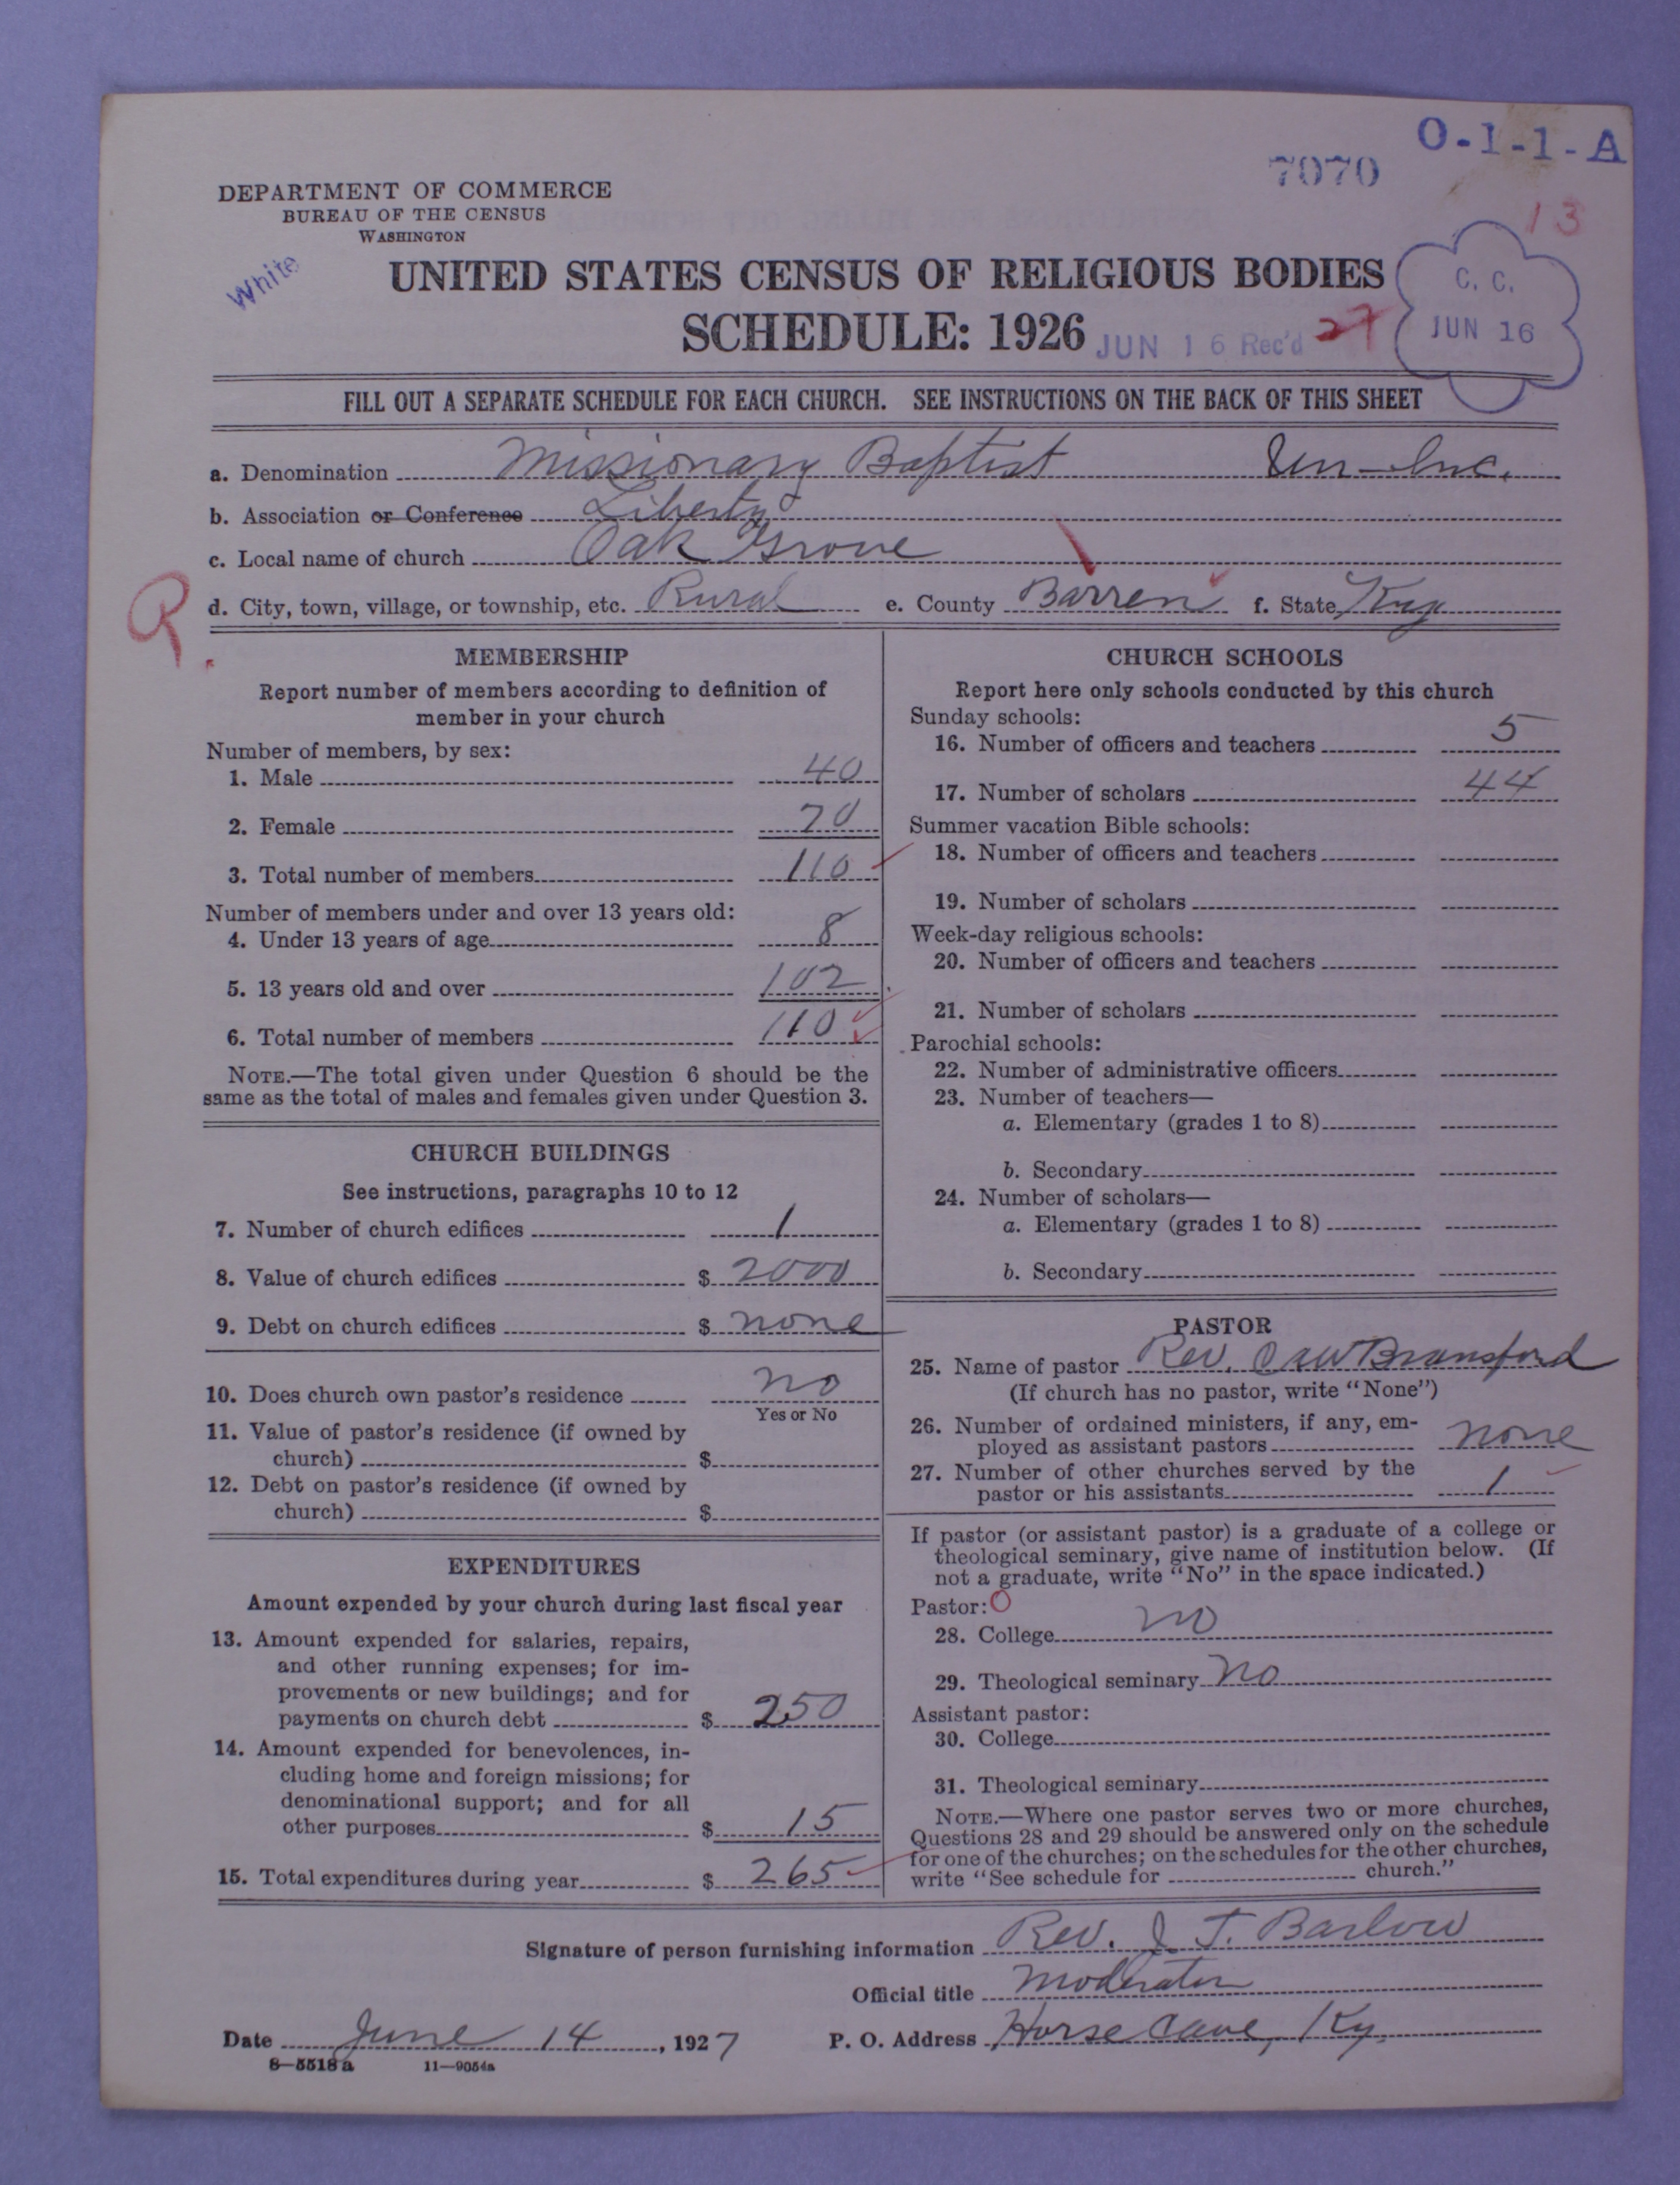 O-1-1-A
7070
13
DEPARTMENT OF COMMERCE
BUREAU OF THE CENSUS
WASHINGTON
White
UNITED STATES CENSUS OF RELIGIOUS BODIES
SCHEDULE: 1926
JUN 16 Rec'd 27
C. C.
JUN 16
FILL OUT A SEPARATE SCHEDULE FOR EACH CHURCH. SEE INSTRUCTIONS ON THE BACK OF THIS SHEET
a. Denomination Missionary Baptist Un-Inc.
b. Association or Conference Liberty
c. Local name of church Oak Grove
R.
d. City, town, village, or township, etc. Rural e. County Barren f. State Ky
MEMBERSHIP
Report number of members according to definition of
member in your church
Number of members, by sex:
1. Male 40
2. Female 70
3. Total number of members 110
Number of members under and over 13 years old:
4. Under 13 years of age 8
5. 13 years old and over 102
6. Total number of members 110
NOTE.—The total given under Question 6 should be the
same as the total of males and females given under Question 3.
CHURCH BUILDINGS
See instructions, paragraphs 10 to 12
7. Number of church edifices 1
8. Value of church edifices $ 2000
9. Debt on church edifices $ none
10. Does church own pastor's residence no
Yes or No
11. Value of pastor's residence (if owned by
church) $
12. Debt on pastor's residence (if owned by
church) $
EXPENDITURES
Amount expended by your church during last fiscal year
13. Amount expended for salaries, repairs,
and other running expenses; for im-
provements or new buildings; and for
payments on church debt $ 250
14. Amount expended for benevolences, in-
cluding home and foreign missions; for
denominational support; and for all
other purposes $ 15
15. Total expenditures during year $ 265
CHURCH SCHOOLS
Report here only schools conducted by this church
Sunday schools:
16. Number of officers and teachers 5
17. Number of scholars 44
Summer vacation Bible schools:
18. Number of officers and teachers
19. Number of scholars
Week-day religious schools:
20. Number of officers and teachers
21. Number of scholars
Parochial schools:
22. Number of administrative officers
23. Number of teachers—
a. Elementary (grades 1 to 8)
b. Secondary
24. Number of scholars—
a. Elementary (grades 1 to 8)
b. Secondary
PASTOR
25. Name of pastor Rev. Bransford
(If church has no pastor, write "None")
26. Number of ordained ministers, if any, em-
ployed as assistant pastors none
27. Number of other churches served by the
pastor or his assistants 1
If pastor (or assistant pastor) is a graduate of a college or
theological seminary, give name of institution below. (If
not a graduate, write "No" in the space indicated.)
Pastor: O
28. College no
29. Theological seminary no
Assistant pastor:
30. College
31. Theological seminary
NOTE.—Where one pastor serves two or more churches,
Questions 28 and 29 should be answered only on the schedule
for one of the churches; on the schedules for the other churches,
write "See schedule for church."
Signature of person furnishing information Rev. J. T. Barlow
Official title Moderator
Date June 14, 1927 P. O. Address Horse Cave, Ky.
8—5518 a 11—9054a